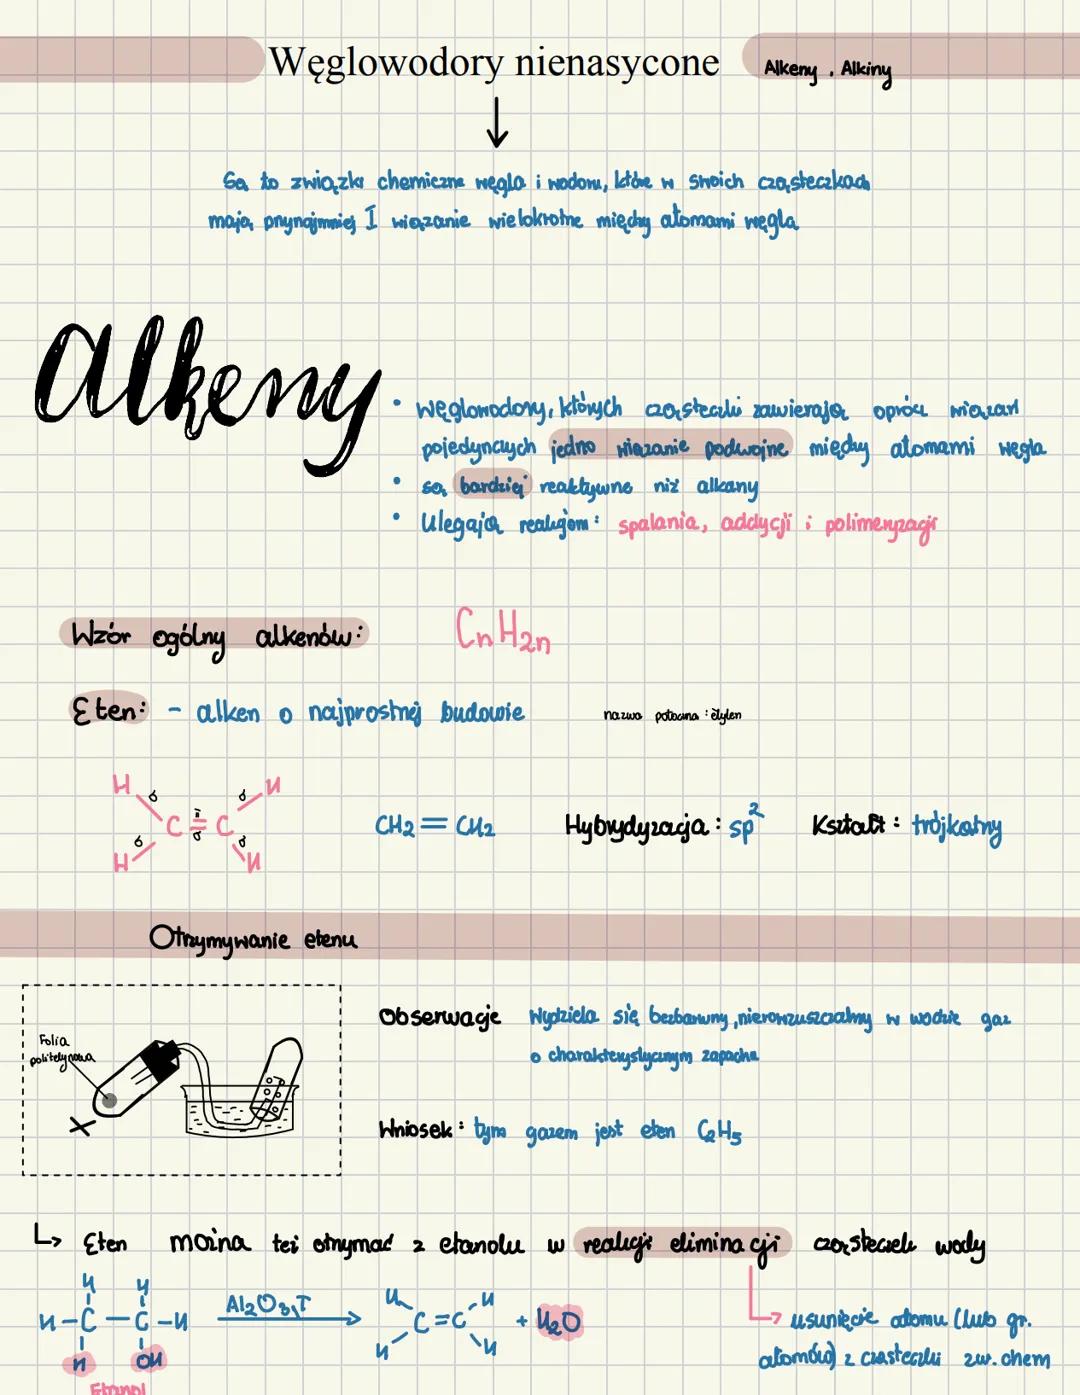 Węglowodory nienasycone
Alkeny, Alkiny
Są to związki chemiczne węgla i wodoru, które w swoich cząsteczkach
mają przynajmniej I wiązanie wielokrotne między atomami węgla
alkeny
• węglowodory, których cząsteczki zawierają oprócz wiązań
pojedynczych jedno wiązanie podwójne między atomami węgla
• są bardziej reaktywne niż alkany
• Ulegają reakcjom: spalania, addycji i polimeryzacji
Wzór ogólny alkenów: CnH2n
Eten: - alken o najprostszej budowie
nazwa potoczna: etylen
H H
C = C
H H
CH2 = CH2 Hybrydyzacja: sp² Kształt: trójkątny
Otrzymywanie etenu
Folia
polietylenowa
Obserwacje Wydziela się bezbarwny, nierozpuszczalny w wodzie gaz
o charakterystycznym zapachu
Wniosek: tym gazem jest eten C2H5
↳ Eten można też otrzymać z etanolu w reakcji eliminacji cząsteczki wody
H H
H-C-C-H
H OH
Etanol
Al2O3, T
H H
C=C
H H
+ H2O
↳ usunięcie atomu (lub gr.
atomów) z cząsteczki zw. chem